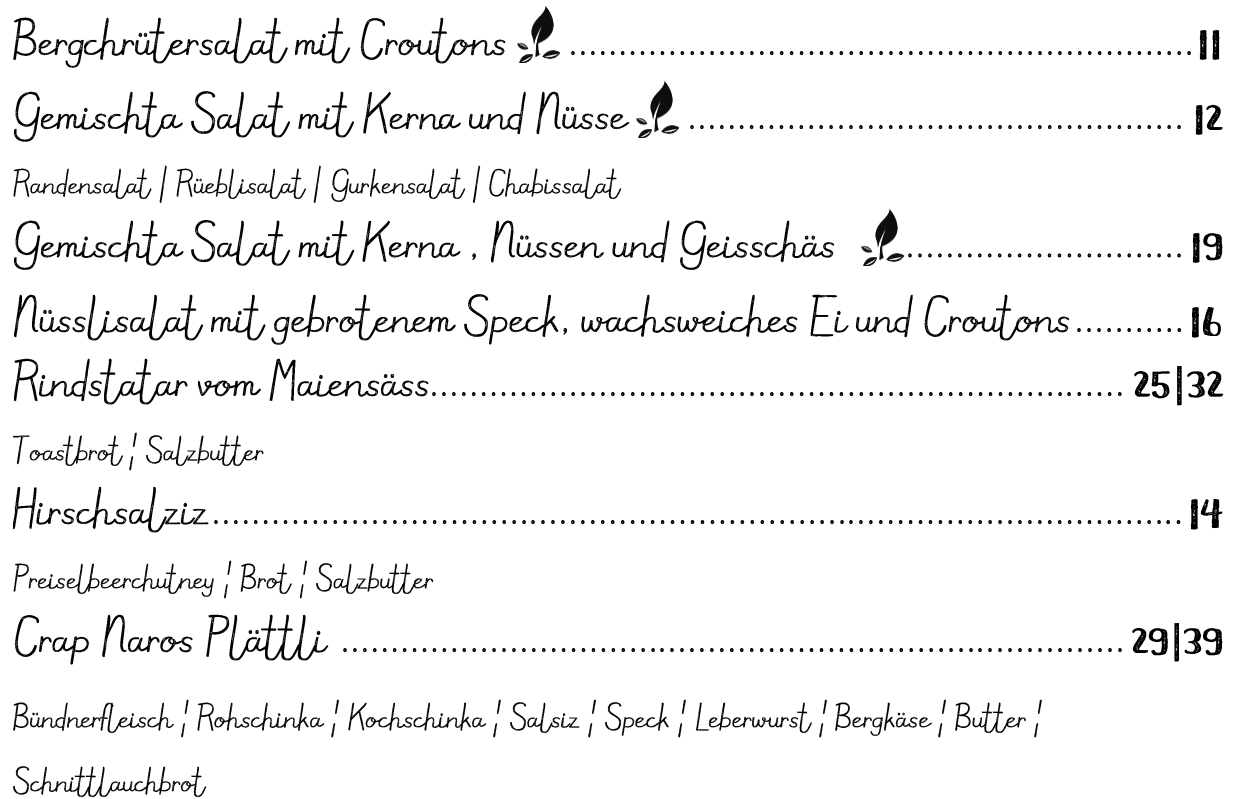 Bergchrütersalat mit Croutons ........................................................................... 11
Gemischta Salat mit Kerna und Nüsse ............................................................ 12
Randensalat | Rüeblisalat | Gurkensalat | Chabissalat
Gemischta Salat mit Kerna , Nüssen und Geisschäs .................................. 19
Nüsslisalat mit gebrotenem Speck, wachsweiches Ei und Croutons........... 16
Rindstatar vom Maiensäss.................................................................................... 25|32
Toastbrot ¦ Salzbutter
Hirschsalziz..................................................................................................................... 14
Preiselbeerchutney ¦ Brot ¦ Salzbutter
Crap Naros Plättli .............................................................................................. 29|39
Bündnerfleisch ¦ Rohschinka ¦ Kochschinka ¦ Salsiz ¦ Speck ¦ Leberwurst ¦ Bergkäse ¦ Butter ¦
Schnittlauchbrot